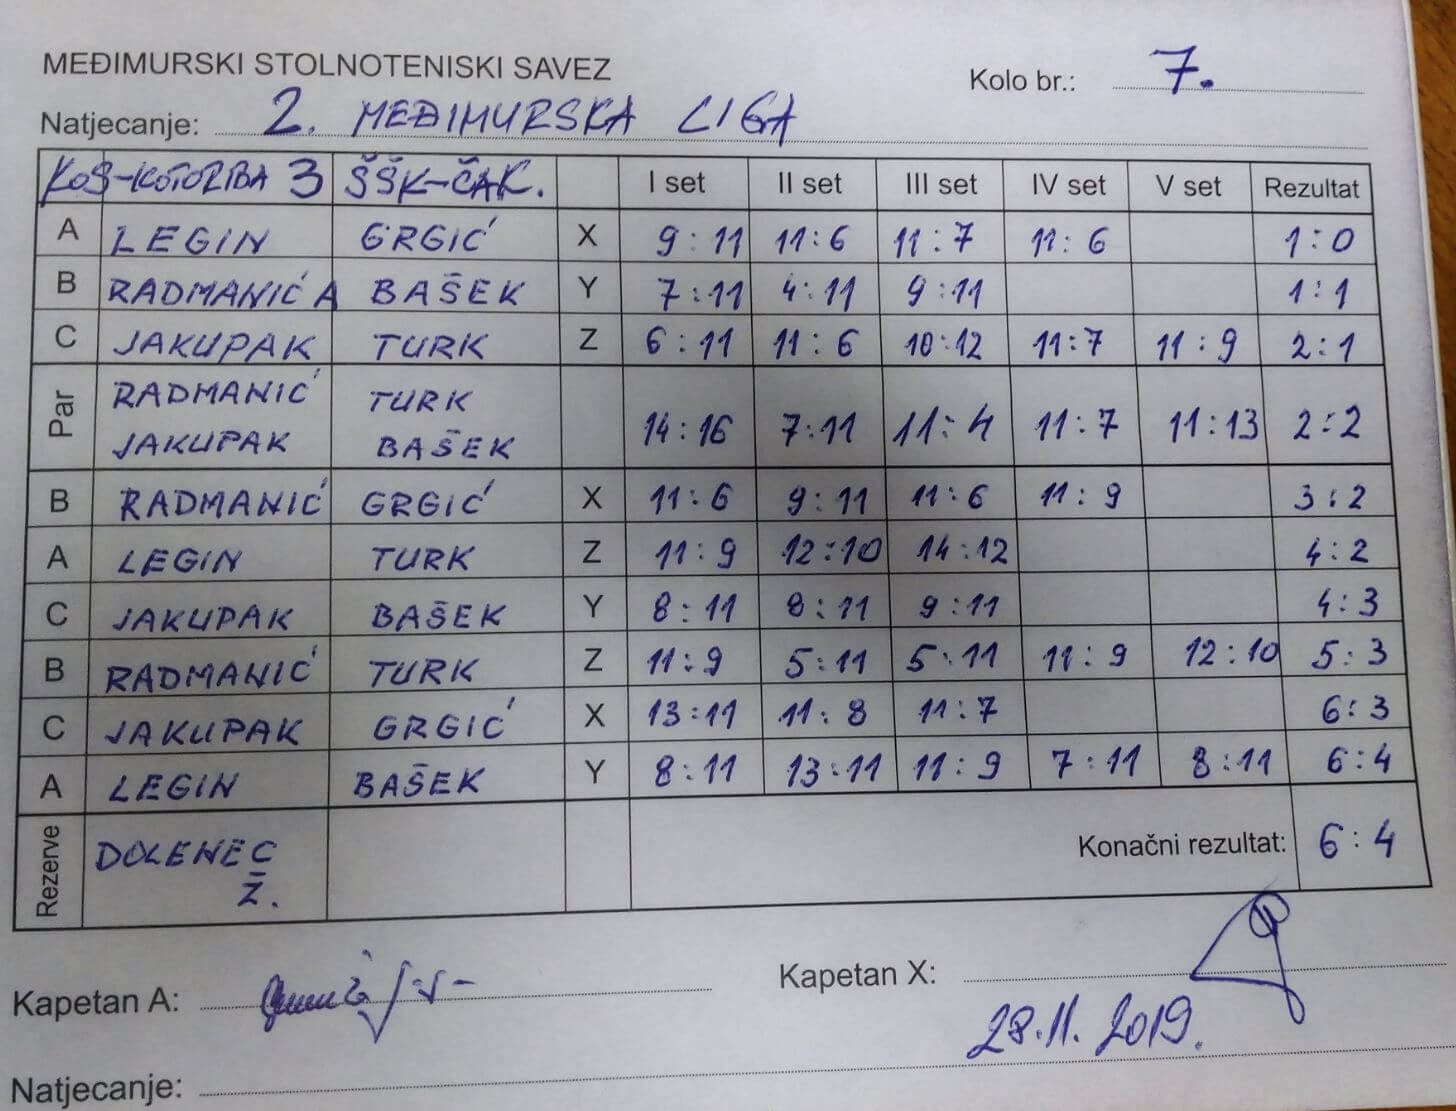 MEĐIMURSKI STOLNOTENISKI SAVEZ
Kolo br.: 7.
Natjecanje: 2. MEĐIMURSKA LIGA
KOŠ-KOTORIBA 3 ŠŠK-ČAK. I set II set III set IV set V set Rezultat
A LEGIN GRGIĆ X 9:11 11:6 11:7 11:6 1:0
B RADMANIĆ A BAŠEK Y 7:11 4:11 9:11 1:1
C JAKUPAK TURK Z 6:11 11:6 10:12 11:7 11:9 2:1
Par RADMANIĆ TURK
JAKUPAK BAŠEK 14:16 7:11 11:4 11:7 11:13 2:2
B RADMANIĆ GRGIĆ X 11:6 9:11 11:6 11:9 3:2
A LEGIN TURK Z 11:9 12:10 14:12 4:2
C JAKUPAK BAŠEK Y 8:11 8:11 9:11 4:3
B RADMANIĆ TURK Z 11:9 5:11 5:11 11:9 12:10 5:3
C JAKUPAK GRGIĆ X 13:11 11:8 11:7 6:3
A LEGIN BAŠEK Y 8:11 13:11 11:9 7:11 8:11 6:4
Rezerve DOLENEC Konačni rezultat: 6:4
Ž.
Kapetan A:
Kapetan X:
28.11.2019.
Natjecanje: